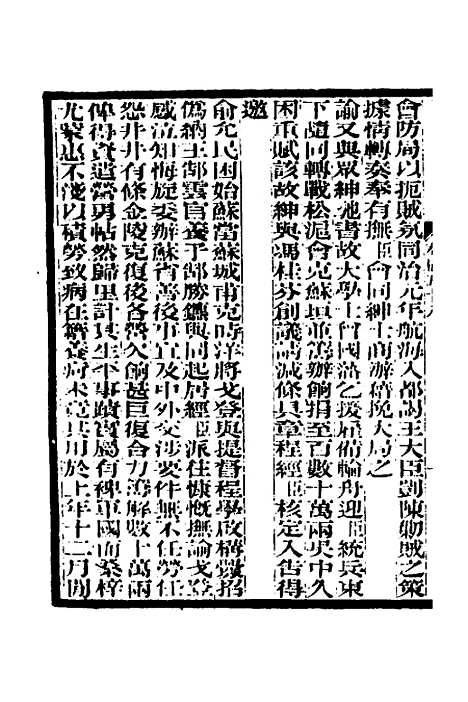 會防局以扼賊氛同治元年航海入都謁王大臣劃陳勦賊之策
據情轉奏奉有撫臣會同紳士商辦藉挽大局之
諭又與眾紳馳書故大學士曾國藩乞援雇備輪舟迎臣統兵東
下隨同轉戰松滬會克蘇垣並籌辦餉捐至百數十萬兩吳中久
困重賦該故紳與馮桂芬創議請減條具章程經臣核定入告得
邀
俞允民困始蘇當蘇城甫克時洋將戈登與提督程學啟構釁招
偽納王郜雲官養子郜勝鑣與同起居經臣派往慷慨撫諭戈登
感泣知悔旋委辦蘇省善後事宜及中外交涉要件無不任勞任
怨井井有條金陵克復後各營久餉甚巨復合力籌解數十萬兩
俾得資遣營勇帖然歸里計其生平事蹟實屬有裨軍國而桑梓
尤蒙惠不淺以積勞致病在籍養疴未竟其用於上年十二月間